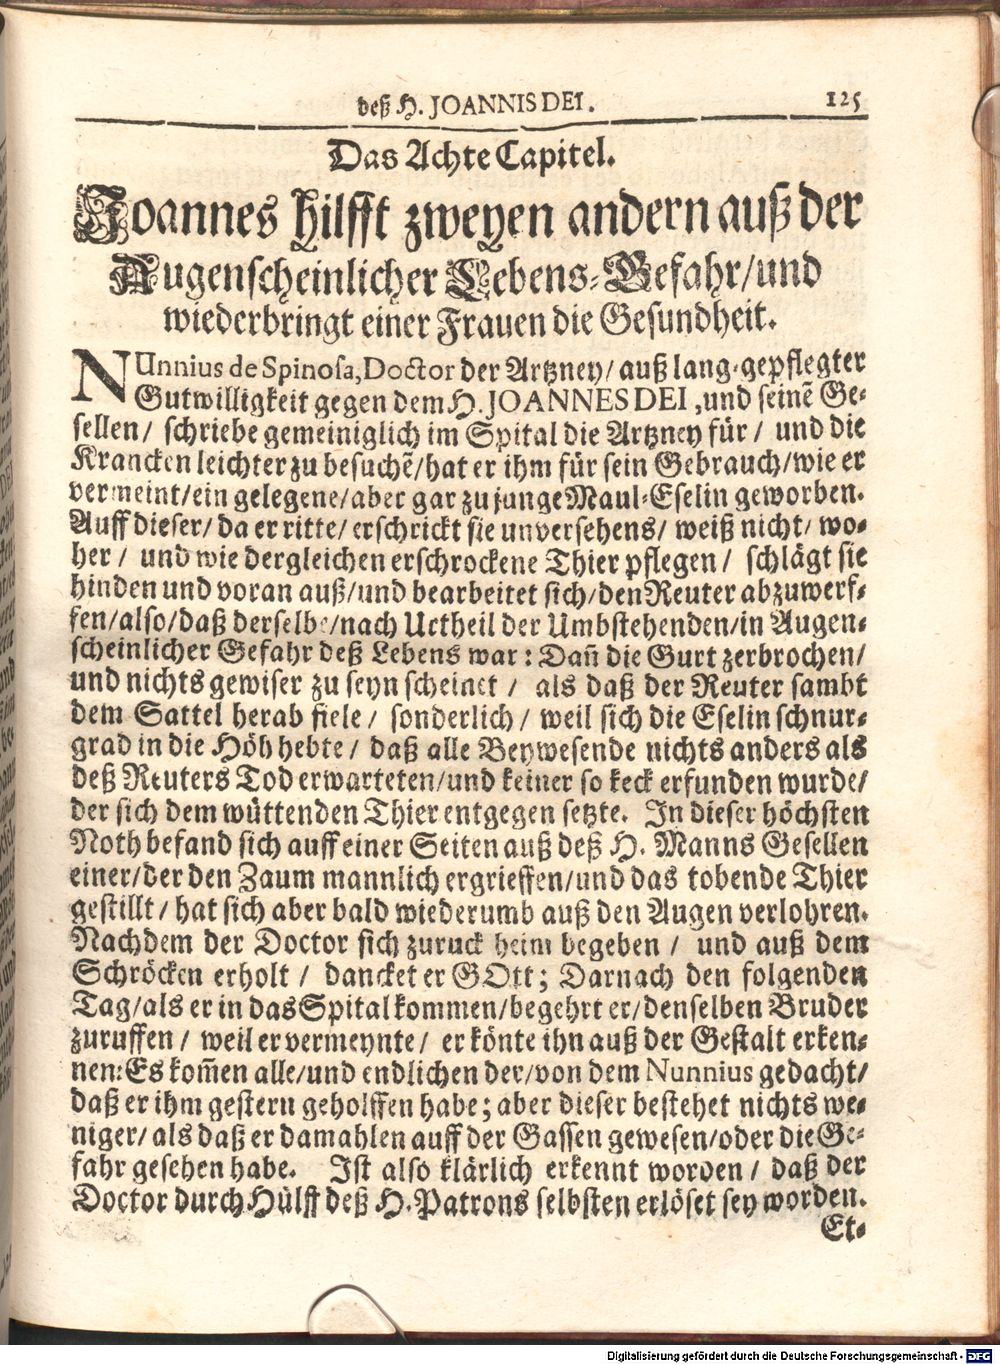 deß H. JOANNIS DEI. 125
Das Achte Capitel.
Joannes hilfft zweyen andern auß der
Augenscheinlicher Lebens-Gefahr/und
wiederbringt einer Frauen die Gesundheit.
NUnnius de Spinosa, Doctor der Artzney/ auß lang-gepflegter
Gutwilligkeit gegen dem H. JOANNES DEI, und seinē Ge-
sellen/ schriebe gemeiniglich im Spital die Artzney für/ und die
Krancken leichter zu besuchē/hat er ihm für sein Gebrauch/wie er
vermeint/ein gelegene/aber gar zu junge Maul-Eselin geworben.
Auff dieser/ da er ritte/ erschrickt sie unversehens/ weiß nicht/ wo-
her/ und wie dergleichen erschrockene Thier pflegen/ schlägt sie
hinden und voran auß/und bearbeitet sich/den Reuter abzuwerf-
fen/also/daß derselbe/nach Urtheil der Umbstehenden/in Augen-
scheinlicher Gefahr deß Lebens war: Dañ die Gurt zerbrochen/
und nichts gewiser zu seyn scheinet/ als daß der Reuter sambt
dem Sattel herab fiele/ sonderlich/ weil sich die Eselin schnur-
grad in die Höh hebte/ daß alle Beywesende nichts anders als
deß Reuters Tod erwarteten/und keiner so keck erfunden wurde/
der sich dem wüttenden Thier entgegen setzte. In dieser höchsten
Noth befand sich auff einer Seiten auß deß H. Manns Gesellen
einer/der den Zaum mannlich ergrieffen/und das tobende Thier
gestillt/ hat sich aber bald wiederumb auß den Augen verlohren.
Nachdem der Doctor sich zuruck heim begeben/ und auß dem
Schröcken erholt/ dancket er GOtt; Darnach den folgenden
Tag/als er in das Spital kommen/begehrt er/denselben Bruder
zuruffen/ weil er vermeynte/ er könte ihn auß der Gestalt erken-
nen: Es kom̃en alle/und endlichen der/von dem Nunnius gedacht/
daß er ihm gestern geholffen habe; aber dieser bestehet nichts we-
niger/ als daß er damahlen auff der Gassen gewesen/oder die Ge-
fahr gesehen habe. Ist also klärlich erkennt worden/ daß der
Doctor durch Hülff deß H. Patrons selbsten erlöset sey worden.
Et-
Digitalisierung gefördert durch die Deutsche Forschungsgemeinschaft - DFG